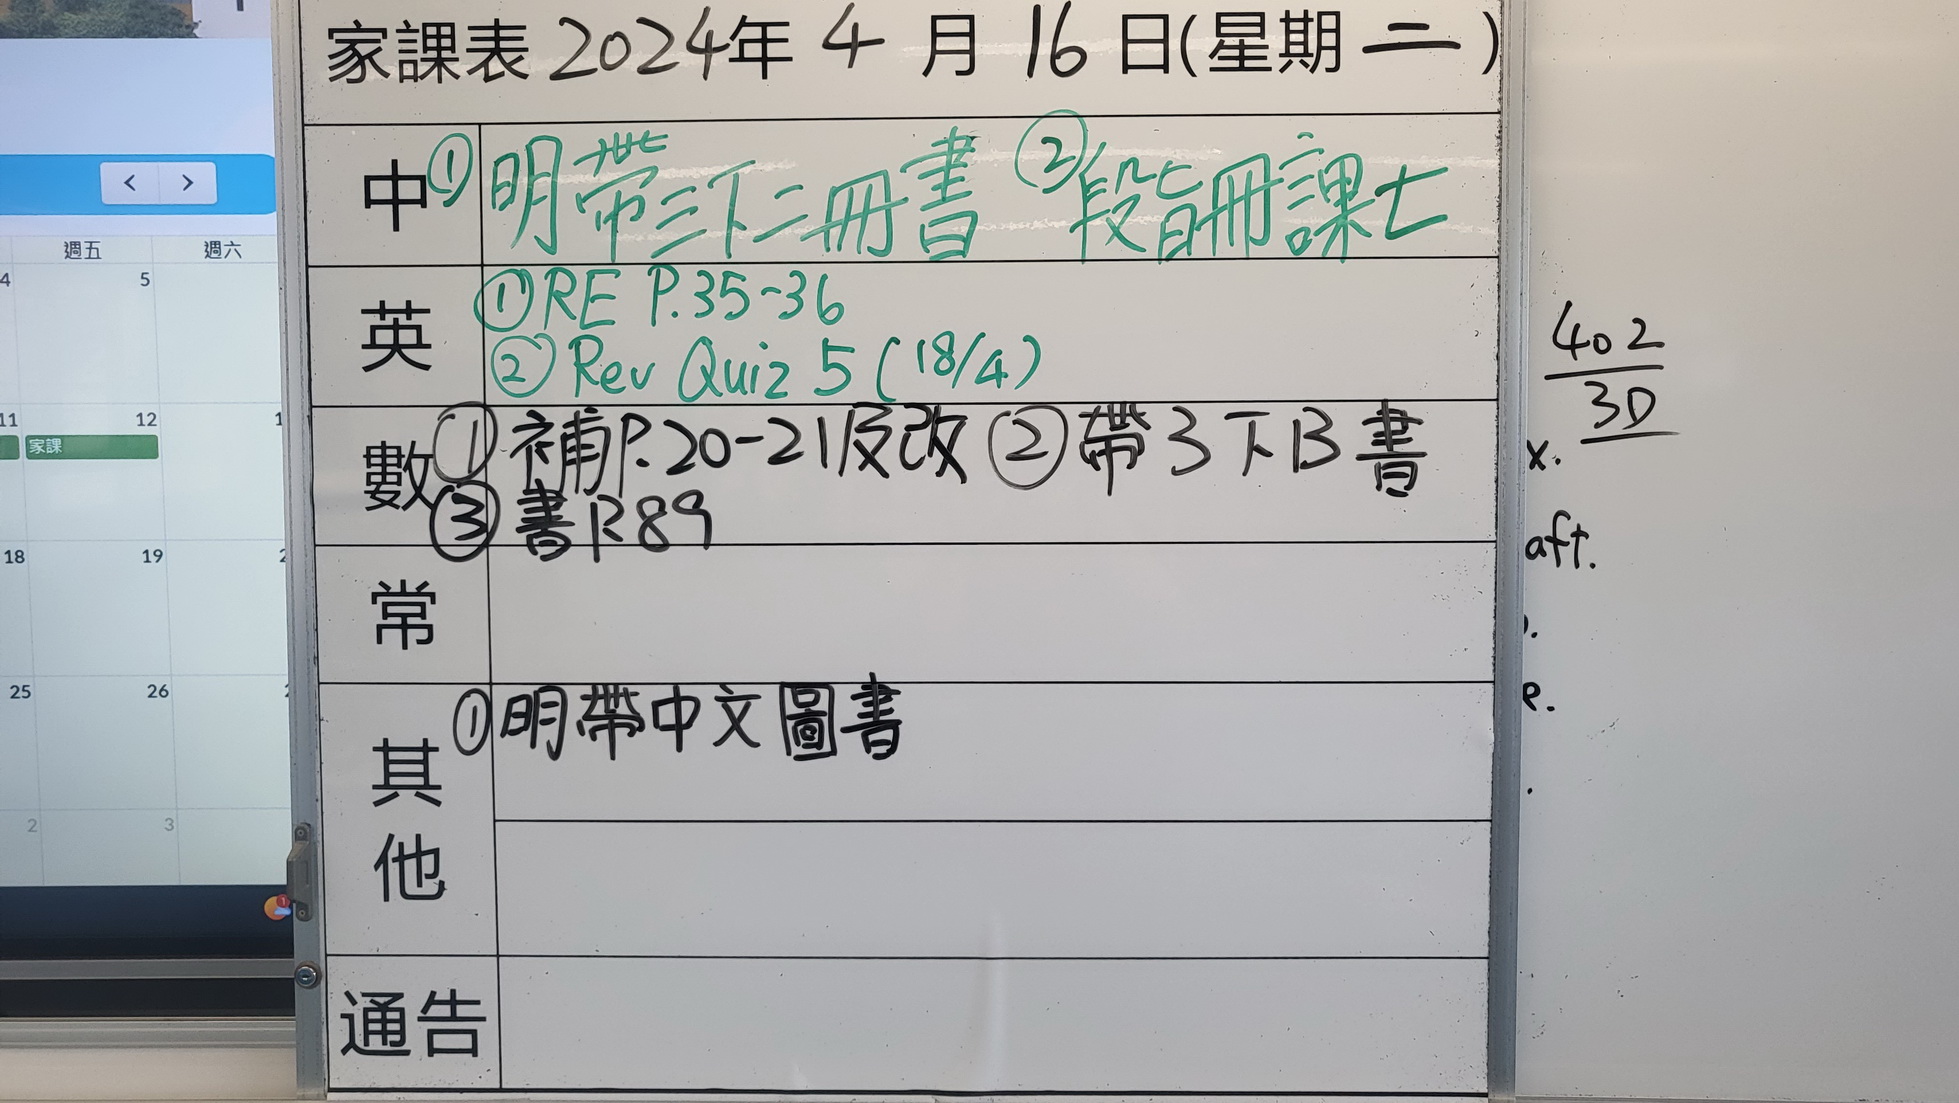 家課表 2024年 4 月 16 日(星期二)
中 ① 明帶三下二冊書 ② 段旨冊課七
英 ① RE P.35-36
② Rev Quiz 5 (18/4)
數 ① 補P.20-21及改 ② 帶3下B書
③ 書P.89
常
其他 ① 明帶中文圖書
通告
週五 週六
4 5
11 12
家課
18 19
25 26
2 3
402
3D
x.
aft.
e.